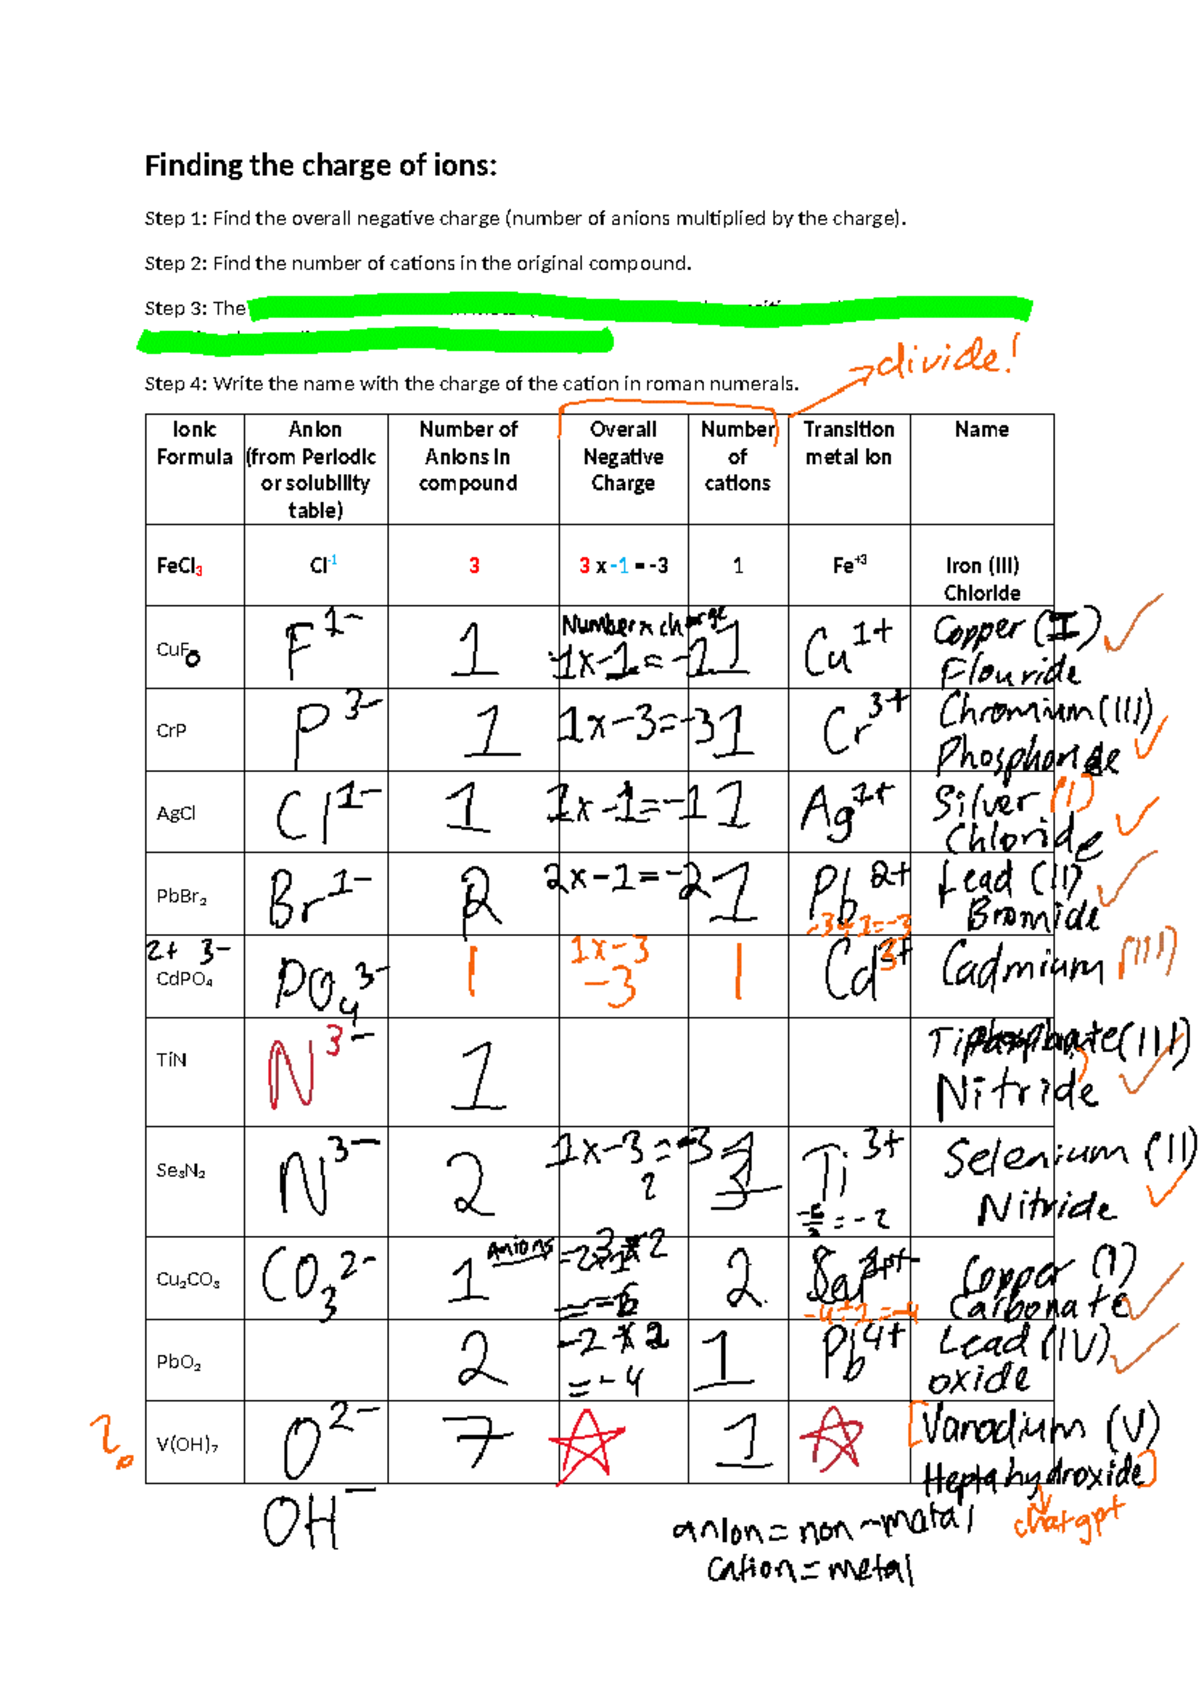 Finding the charge of ions:
Step 1: Find the overall negative charge (number of anions multiplied by the charge).
Step 2: Find the number of cations in the original compound.
Step 3: The
divide!
Step 4: Write the name with the charge of the cation in roman numerals.
Ionic Formula Anion (from Periodic or solubility table) Number of Anions in compound Overall Negative Charge Number of cations Transition metal ion Name
FeCl3 Cl-1 3 3 x -1 = -3 1 Fe+3 Iron (III) Chloride
Number x charge
CuF F1- 1 -1x-1=-1 1 Cu1+ Copper (I) Flouride
CrP P3- 1 1x-3=-3 1 Cr3+ Chromium (III) Phosphoride
AgCl Cl1- 1 1x-1=-1 1 Ag1+ Silver (I) Chloride
PbBr2 Br1- 2 2x-1=-2 1 Pb2+ Lead (II) Bromide
-3÷1=-3
2+ 3-
CdPO4 PO43- 1 1x-3 -3 1 Cd3+ Cadmium (III)
TiN N3- 1 (III) Nitride
Se3N2 N3- 2 1x-3=-3 3 Ti3+ Selenium (II) Nitride
2
= -2
Anions
Cu2CO3 CO32- 1 =-6 2 Copper (I) Carbonate
-4÷1=-4
PbO2 2 -2x2 =-4 1 Pb4+ Lead (IV) oxide
V(OH)7 O2- 7 1 [Vanadium (V) Heptahydroxide]
OH-
chatgpt
anion = non-matal
cation = metal